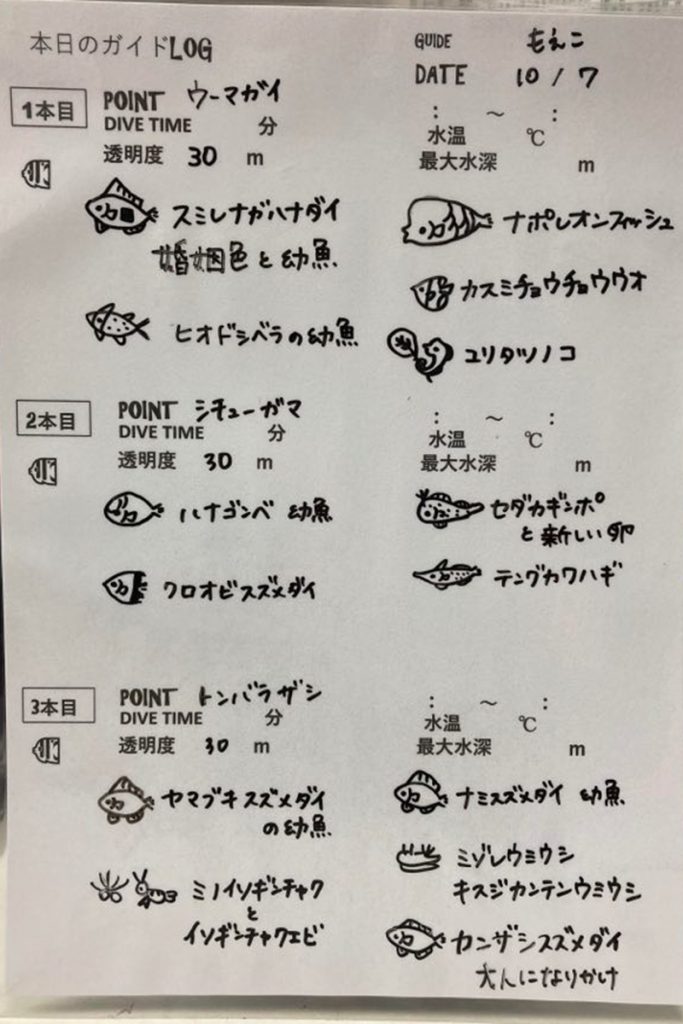 本日のガイドLOG
GUIDE もえこ
DATE 10 / 7
1本目 POINT ウーマガイ
: ～ :
DIVE TIME 分
水温 ℃
透明度 30 m
最大水深 m
スミレナガハナダイ
婚姻色と幼魚
ヒオドシベラの幼魚
ナポレオンフィッシュ
カスミチョウチョウウオ
ユリタツノコ
2本目 POINT シチューガマ
: ～ :
DIVE TIME 分
水温 ℃
透明度 30 m
最大水深 m
ハナゴンベ 幼魚
クロオビスズメダイ
セダカギンポ
と新しい卵
テングカワハギ
3本目 POINT トンバラザシ
: ～ :
DIVE TIME 分
水温 ℃
透明度 30 m
最大水深 m
ヤマブキスズメダイ
の幼魚
ミノイソギンチャク
と
イソギンチャクエビ
ナミスズメダイ 幼魚
ミゾレウミウシ
キスジカンテンウミウシ
カンザシスズメダイ
大人になりかけ